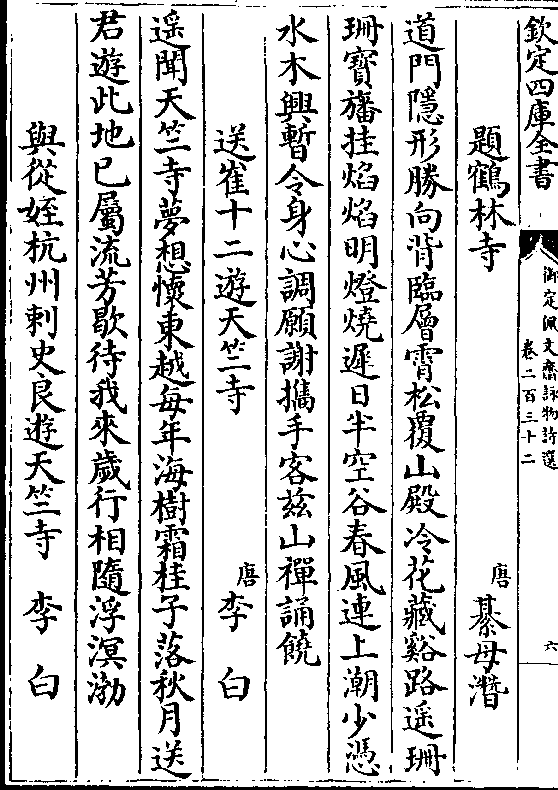 欽定四庫全書
御定佩文齋詠物詩選
卷二百三十二
六
題鶴林寺
唐
綦母潛
道門隱形勝向背臨層霄松覆山殿冷花藏谿路遥珊
珊寳旛挂焰焰明燈燒遲日半空谷春風連上潮少憑
水木興暫令身心調願謝攜手客兹山禪誦饒
送崔十二遊天竺寺
唐
李白
遥聞天竺寺夢想懷東越每年海樹霜桂子落秋月送
君遊此地已屬流芳歇待我來歲行相隨浮溟渤
與從姪杭州刺史良遊天竺寺 李白